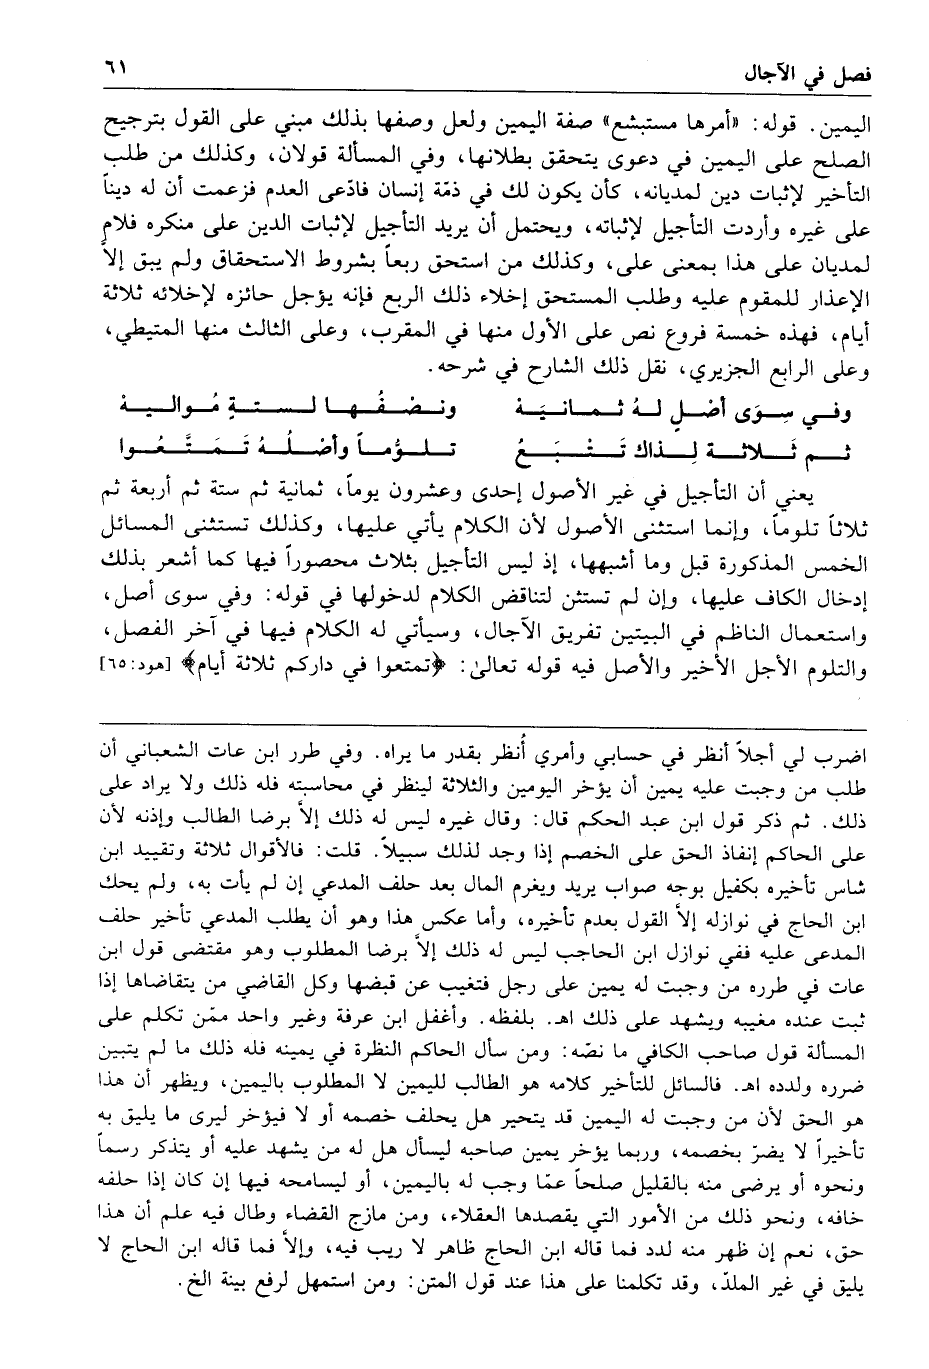 فصل في الآجال ٦١
اليمين. قوله: «أمرها مستبشع» صفة اليمين ولعل وصفها بذلك مبني على القول بترجيح
الصلح على اليمين في دعوى يتحقق بطلانها، وفي المسألة قولان، وكذلك من طلب
التأخير لإثبات دين لمديانه، كأن يكون لك في ذمّة إنسان فادّعى العدم فزعمت أن له ديناً
على غيره وأردت التأجيل لإثباته، ويحتمل أن يريد التأجيل لإثبات الدين على منكره فلام
لمديان على هذا بمعنى على، وكذلك من استحق ربعاً بشروط الاستحقاق ولم يبق إلاّ
الإعذار للمقوم عليه وطلب المستحق إخلاء ذلك الربع فإنه يؤجل حائزه لإخلائه ثلاثة
أيام، فهذه خمسة فروع نص على الأول منها في المقرب، وعلى الثالث منها المتيطي،
وعلى الرابع الجزيري، نقل ذلك الشارح في شرحه.
وفي سِوَى أصْلٍ لهُ ثمانيَهْ ونصْفُها لستةٍ مُواليهْ
ثم ثَلاثة لِذاك تَتْبَعُ تلوُّماً وأصْلُهُ تَمَتَّعُوا
يعني أن التأجيل في غير الأصول إحدى وعشرون يوماً، ثمانية ثم ستة ثم أربعة ثم
ثلاثاً تلوماً، وإنما استثنى الأصول لأن الكلام يأتي عليها، وكذلك تستثنى المسائل
الخمس المذكورة قبل وما أشبهها، إذ ليس التأجيل بثلاث محصوراً فيها كما أشعر بذلك
إدخال الكاف عليها، وإن لم تستثن لتناقض الكلام لدخولها في قوله: وفي سوى أصل،
واستعمال الناظم في البيتين تفريق الآجال، وسيأتي له الكلام فيها في آخر الفصل،
والتلوم الأجل الأخير والأصل فيه قوله تعالىٰ: ﴿تمتعوا في داركم ثلاثة أيام﴾ [هود: ٦٥]
اضرب لي أجلاً أنظر في حسابي وأمري أُنظر بقدر ما يراه. وفي طرر ابن عات الشعباني أن
طلب من وجبت عليه يمين أن يؤخر اليومين والثلاثة لينظر في محاسبته فله ذلك ولا يراد على
ذلك. ثم ذكر قول ابن عبد الحكم قال: وقال غيره ليس له ذلك إلاّ برضا الطالب وإذنه لأن
على الحاكم إنفاذ الحق على الخصم إذا وجد لذلك سبيلاً. قلت: فالأقوال ثلاثة وتقييد ابن
شاس تأخيره بكفيل بوجه صواب يريد ويغرم المال بعد حلف المدعي إن لم يأت به، ولم يحك
ابن الحاج في نوازله إلاّ القول بعدم تأخيره، وأما عكس هذا وهو أن يطلب المدعي تأخير حلف
المدعى عليه ففي نوازل ابن الحاجب ليس له ذلك إلاّ برضا المطلوب وهو مقتضى قول ابن
عات في طرره من وجبت له يمين على رجل فتغيب عن قبضها وكل القاضي من يتقاضاها إذا
ثبت عنده مغيبه ويشهد على ذلك اهـ. بلفظه. وأغفل ابن عرفة وغير واحد ممّن تكلم على
المسألة قول صاحب الكافي ما نصّه: ومن سأل الحاكم النظرة في يمينه فله ذلك ما لم يتبين
ضرره ولدده اهـ. فالسائل للتأخير كلامه هو الطالب لليمين لا المطلوب باليمين، ويظهر أن هذا
هو الحق لأن من وجبت له اليمين قد يتحير هل يحلف خصمه أو لا فيؤخر ليرى ما يليق به
تأخيراً لا يضرّ بخصمه، وربما يؤخر يمين صاحبه ليسأل هل له من يشهد عليه أو يتذكر رسماً
ونحوه أو يرضى منه بالقليل صلحاً عمّا وجب له باليمين، أو ليسامحه فيها إن كان إذا حلفه
خافه، ونحو ذلك من الأمور التي يقصدها العقلاء، ومن مازج القضاء وطال فيه علم أن هذا
حق، نعم إن ظهر منه لدد فما قاله ابن الحاج ظاهر لا ريب فيه، وإلاّ فما قاله ابن الحاج لا
يليق في غير الملدّ، وقد تكلمنا على هذا عند قول المتن: ومن استمهل لرفع بينة الخ.